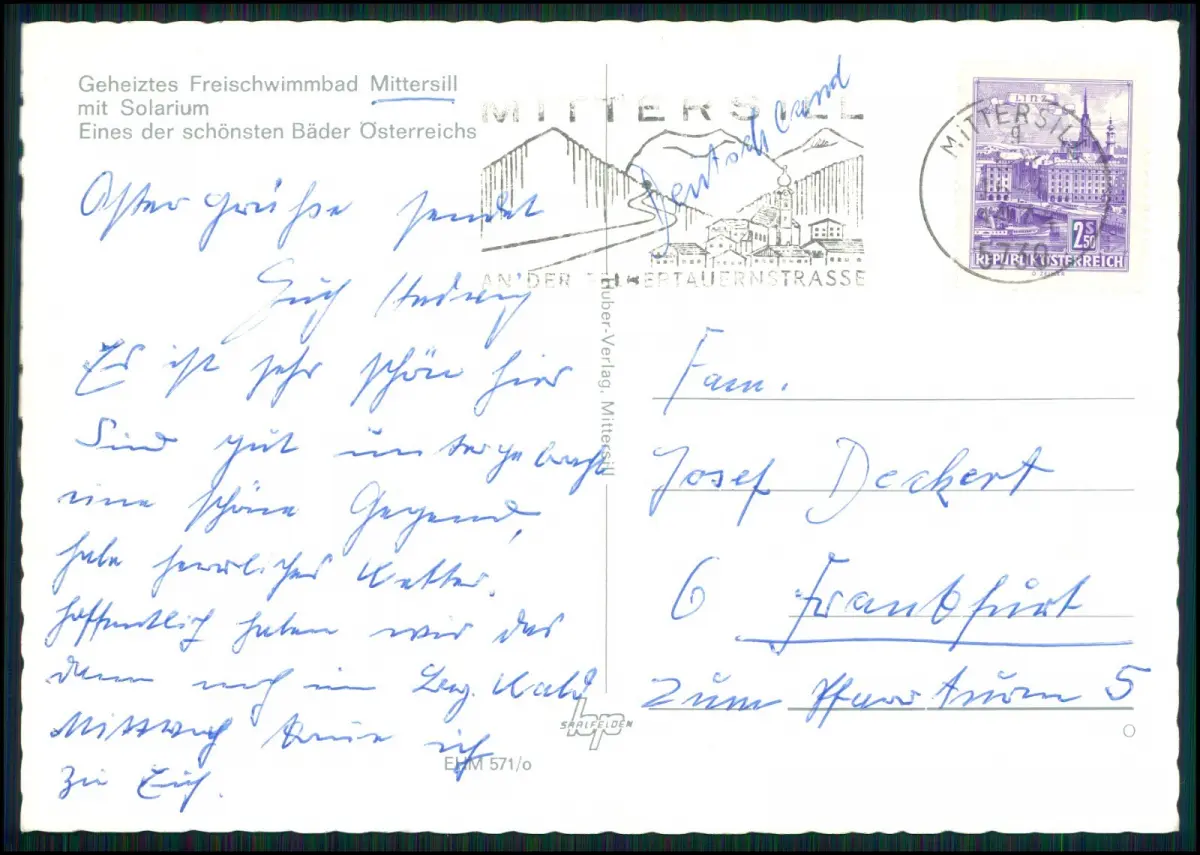 Geheiztes Freischwimmbad Mittersill
mit Solarium
Eines der schönsten Bäder Österreichs
Ostergrüße sendet
Euch Hedwig
Es ist sehr schön hier
Sind gut untergebracht
eine schöne Gegend,
habe herrliches Wetter.
hoffentlich haben wir das
dann noch im Wald
Mittwoch komme ich
zu Euch.
MITTERSILL
AN DER FELBERTAUERNSTRASSE
Deutschland
LINZ
2 S 50
REPUBLIK ÖSTERREICH
MITTERSILL
5730
Huber-Verlag, Mittersill
Fam.
Josef Deckert
6 Frankfurt
Zum Pfarrturm 5
SAALFELDEN
EHM 571/o